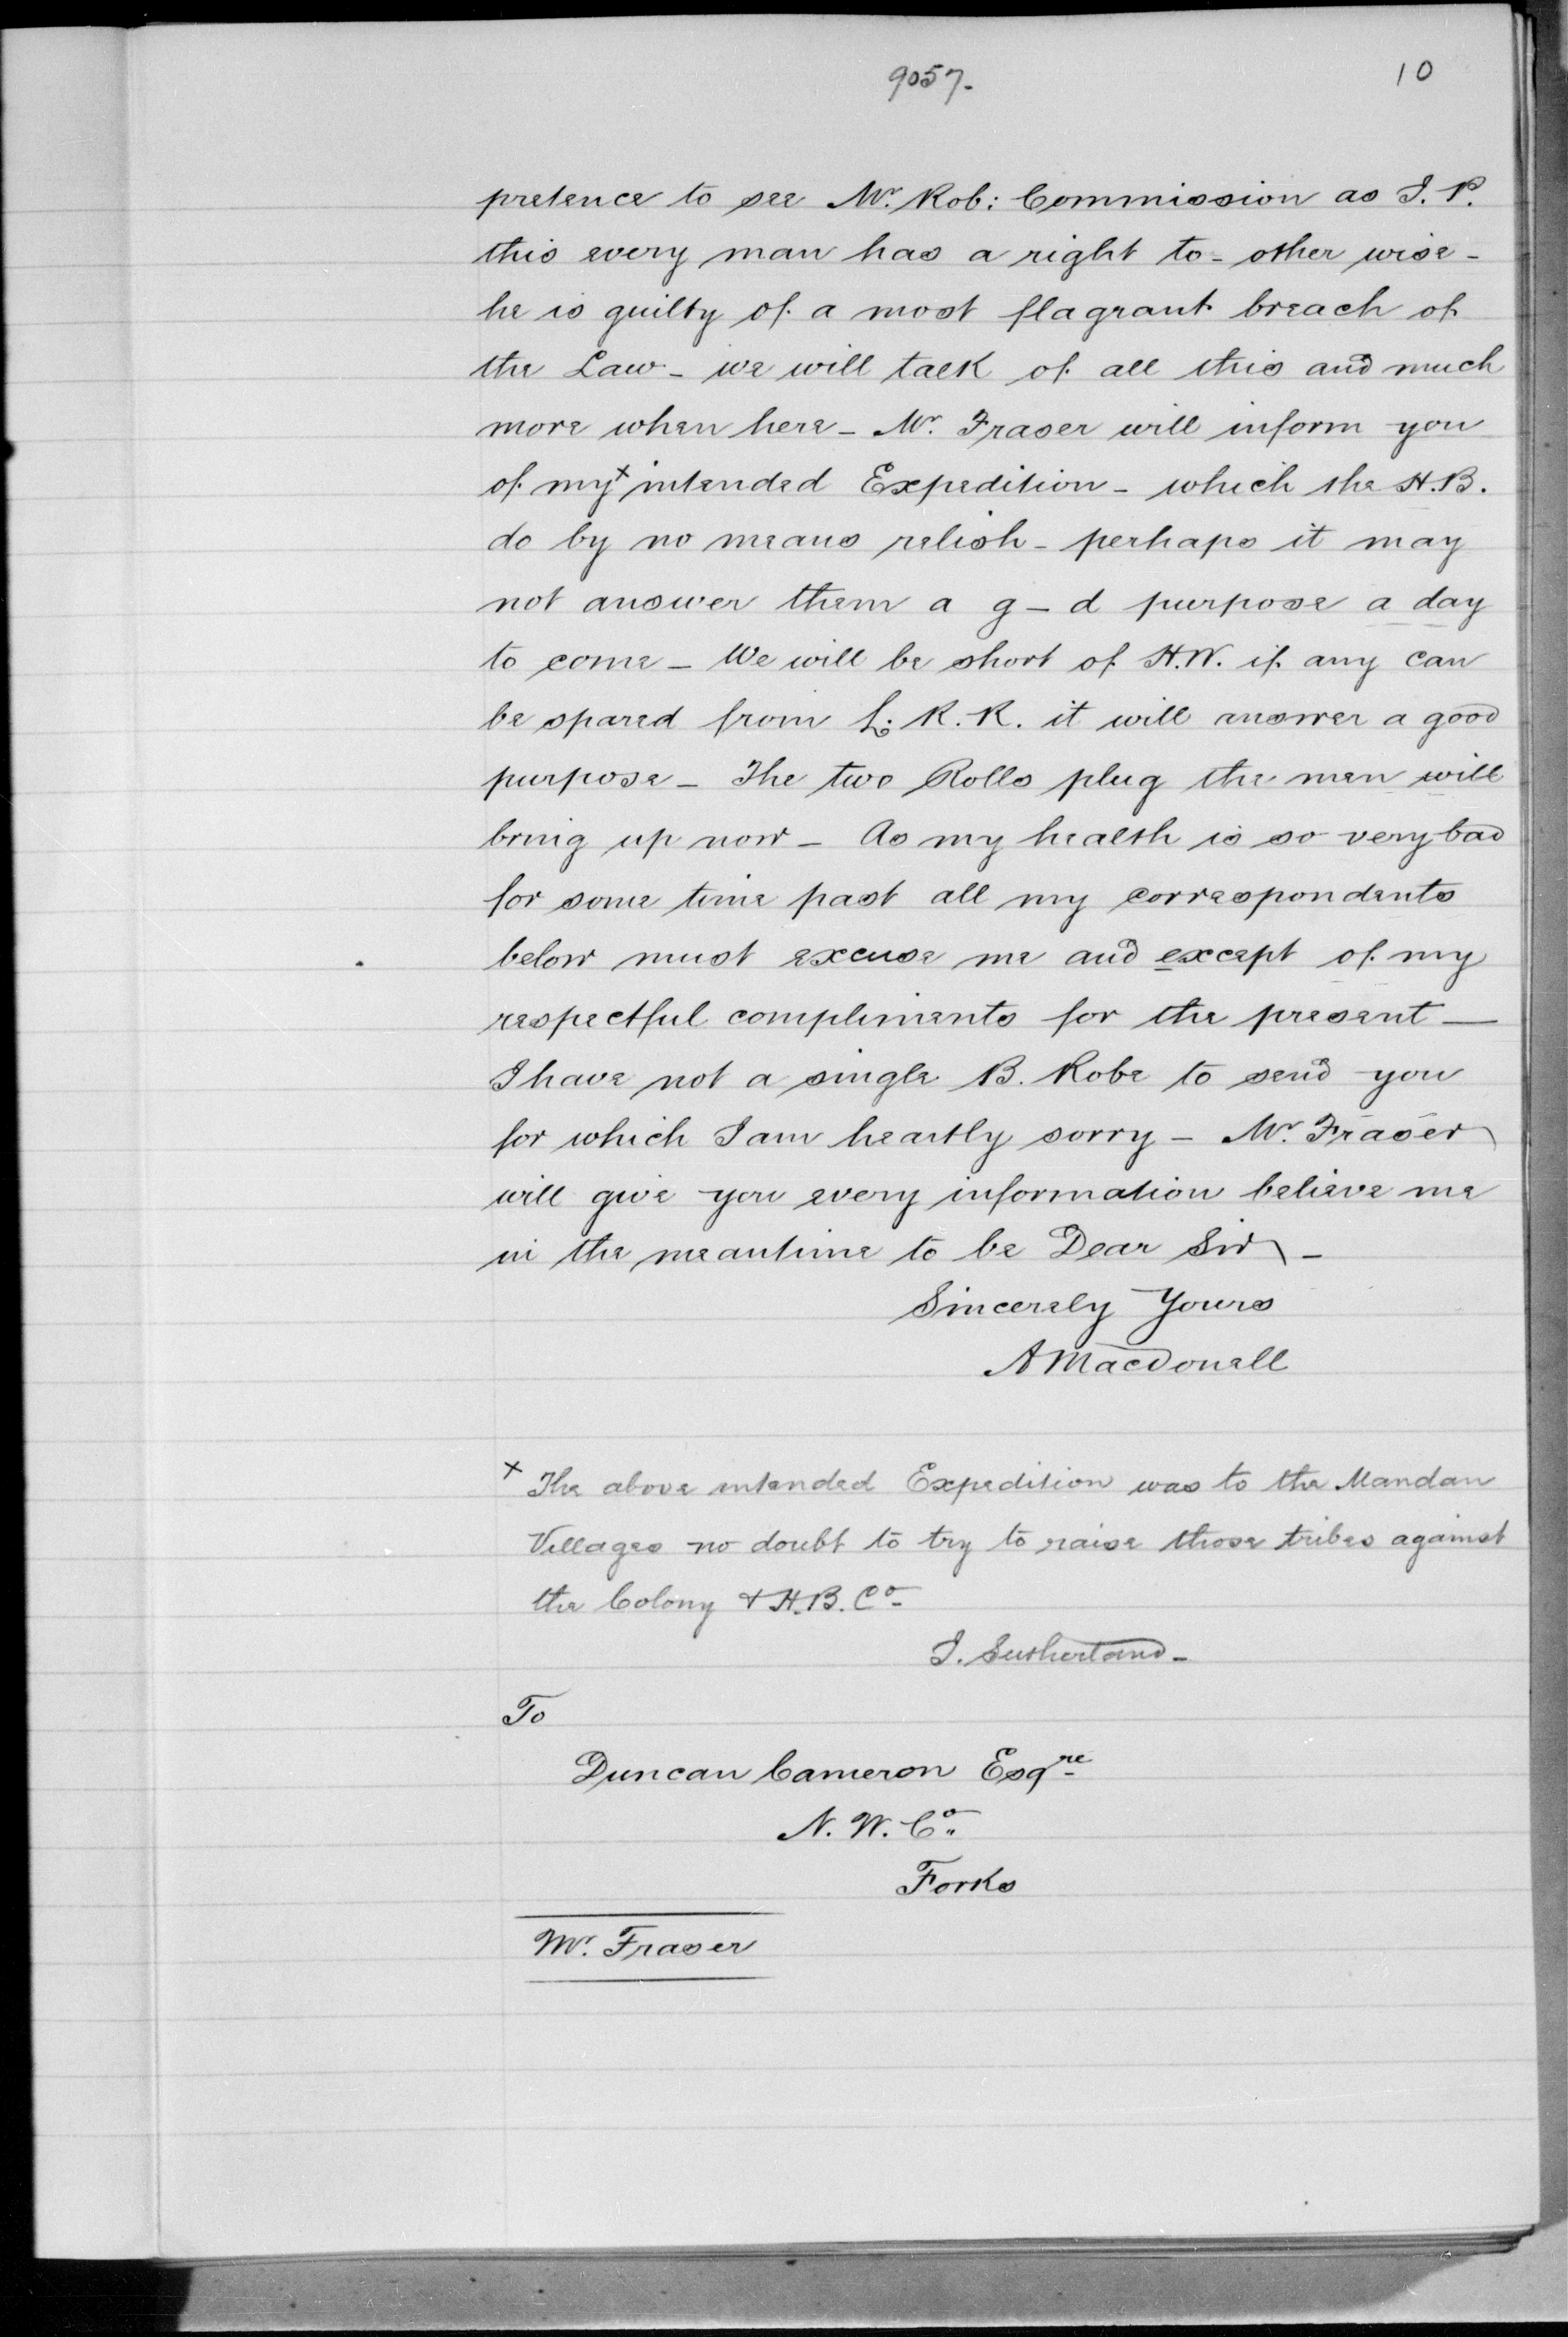 9057. 10
pretence to see Mr. Rob: Commission as J. P.
this every man has a right to - other wise -
he is guilty of a most flagrant breach of
the Law - we will talk of all this and much
more when here - Mr. Fraser will inform you
of my x intended Expedition - which the H.B.
do by no means relish - perhaps it may
not answer them a g - d purpose a day
to come - We will be short of H.W. if any can
be spared from L. R. R. it will answer a good
purpose - The two Rolls plug the men will
bring up now - As my health is so very bad
for some time past all my correspondents
below must excuse me and except of my
respectful compliments for the present —
I have not a single B. Robe to send you
for which I am heartly sorry - Mr. Fraser
will give you every information believe me
in the meantime to be Dear Sir -
Sincerely Yours
A Macdonell
x The above intended Expedition was to the Mandan
Villages no doubt to try to raise those tribes against
the Colony & H.B. Co -
J. Sutherland -
To
Duncan Cameron Esqre
N. W. Co.
Forks
Mr. Fraser